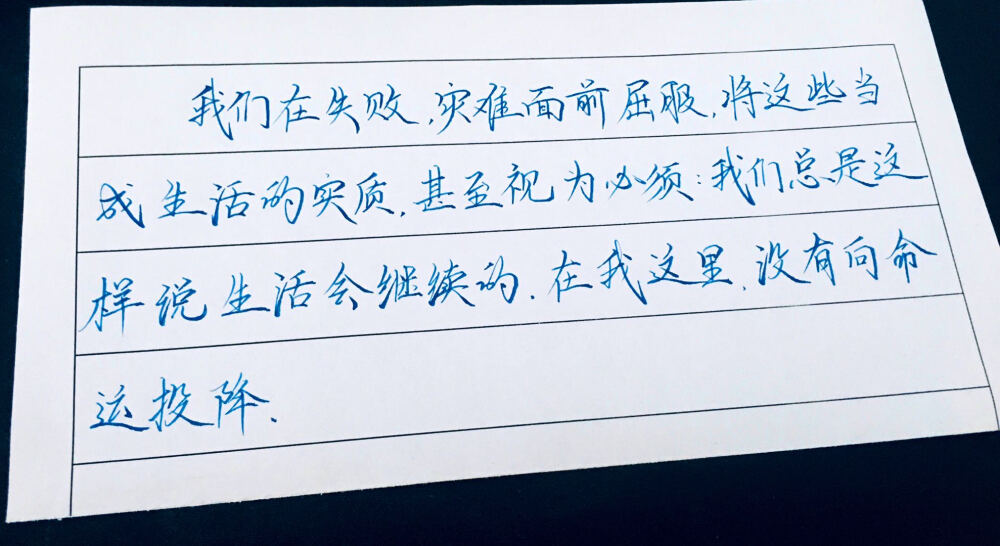 我们在失败,灾难面前屈服,将这些当
成生活的实质,甚至视为必须:我们总是这
样说生活会继续的.在我这里,没有向命
运投降.